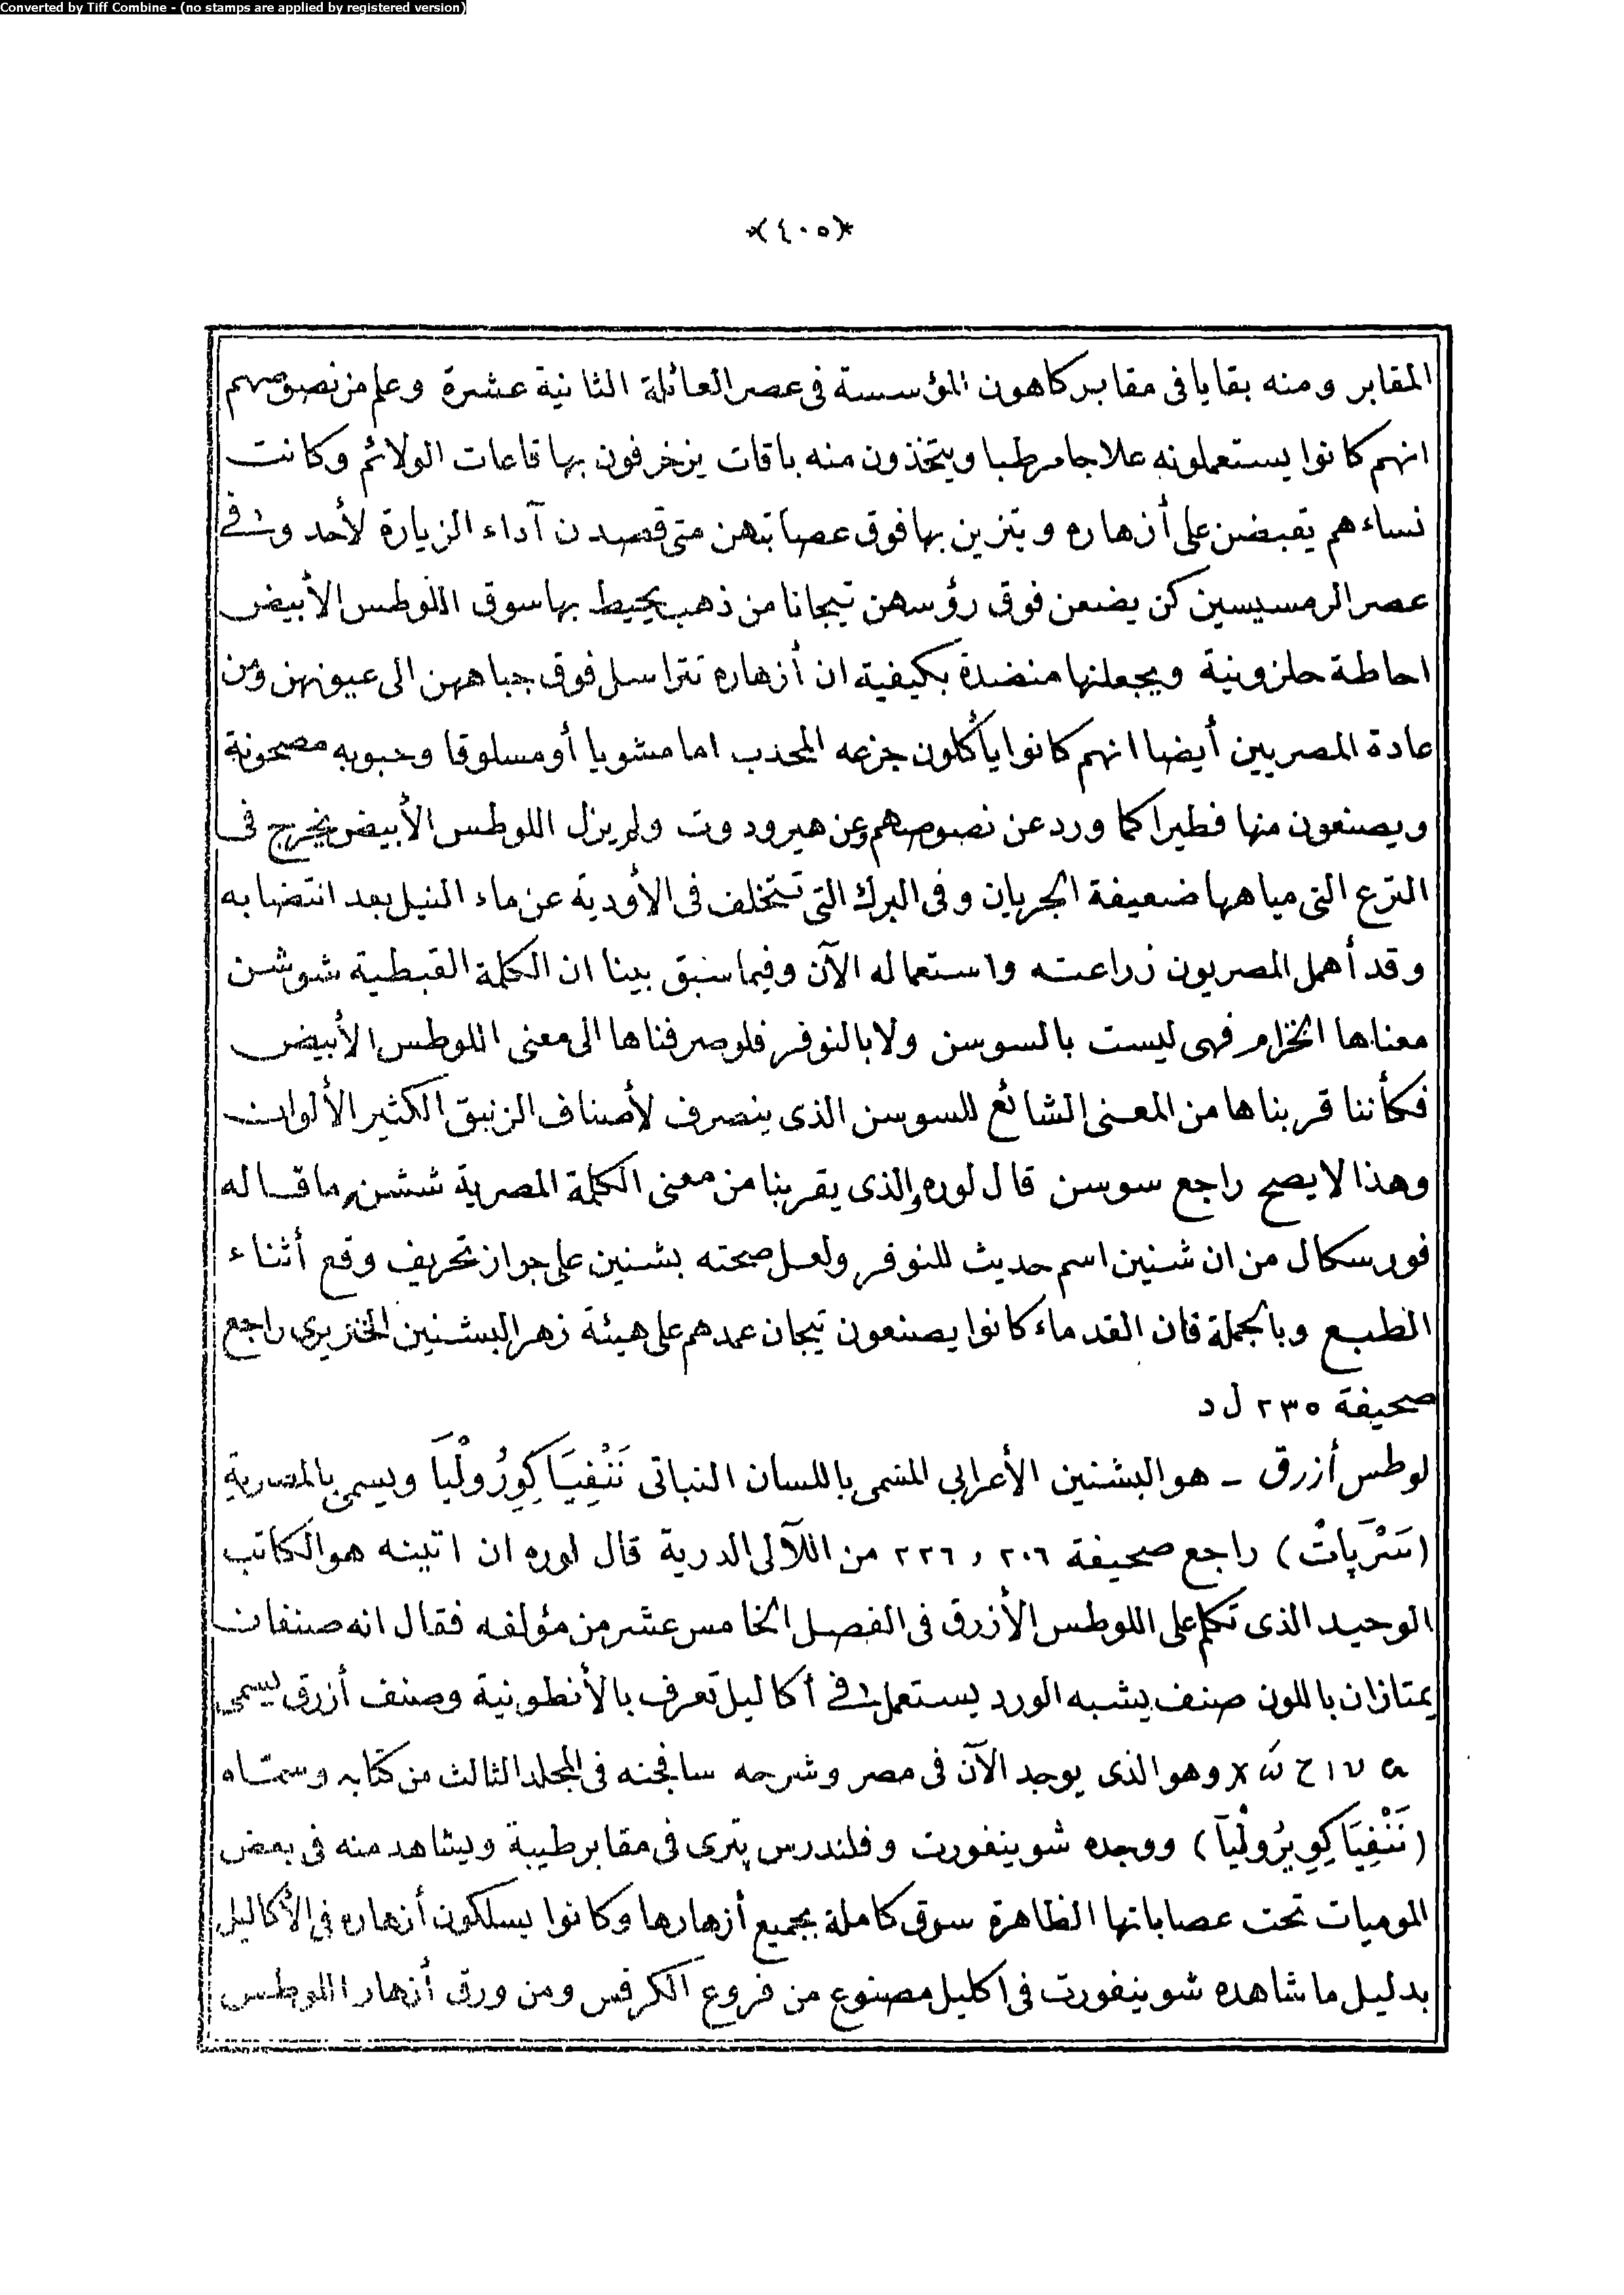 Converted by Tiff Combine - (no stamps are applied by registered version)
*(٤٠٥)*
المقابر ومنه بقايا فى مقابر كاهون المؤسسة فى عصر العائلة الثانية عشرة وعلم من نصوصهم
انهم كانوا يستعملونه علاجا مرطبا ويتخذون منه باقات يزخرفون بها قاعات الولائم وكانت
نساءهم يقبضن على أزهاره ويتزين بها فوق عصابتهن متى قصدن آداء الزيارة لأحد وفى
عصر الرمسيسين كن يضعن فوق رؤسهن تيجانا من ذهب يحيط بها سوق اللوطس الأبيض
احاطة حلزونية ويجعلنها منضدة بكيفية ان أزهاره تتراسل فوق جباههن الى عيونهن ومن
عادة المصريين أيضا انهم كانوا يأكلون جزعه المحدب اما مشويا أو مسلوقا وحبوبه مصحونة
ويصنعون منها فطيرا كما ورد عن نصوصهم وعن هيرودوت ولم يزل اللوطس الأبيض يخرج فى
الترع التى مياهها ضعيفة الجريان وفى البرك التى تتخلف فى الأودية عن ماء النيل بعد انتضابه
وقد أهمل المصريون زراعته واستعماله الآن وفيما سبق بينا ان الكلمة القبطية شوشن
معناها الخزام فهى ليست بالسوسن ولا بالنوفر فلو صرفناها الى معنى اللوطس الأبيض
فكأننا قربناها من المعنى الشائع للسوسن الذى ينصرف لأصناف الزنبق الكثير الألوان
وهذا لا يصح راجع سوسن قال لوره والذى يقربنا من معنى الكلمة المصرية ششن ما قاله
فورسكال من ان شنين اسم حديث للنوفر ولعل صحته بشنين على جواز تحريف وقع أثناء
الطبع وبالجملة فان القدماء كانوا يصنعون تيجان عمدهم على هيئة زهر البشنين الخنزيرى راجع
صحيفة ٢٣٥ ل د
لوطس أزرق - هو البشنين الأعرابي المسمى باللسان النباتى نَنْفِيَا كِورُولْيَا ويسمى بالمصرية
(سَرْپاتْ) راجع صحيفة ٢٠٦ و ٢٢٦ من اللآلى الدرية قال لوره ان اتينه هو الكاتب
الوحيد الذى تكلم على اللوطس الأزرق فى الفصل الخامس عشر من مؤلفه فقال انه صنفان
يمتازان باللون صنف يشبه الورد يستعمل فى أكاليل تعرف بالأنطونية وصنف أزرق يسمى
وهو الذى يوجد الآن فى مصر وشرحه سافجنه فى المجلد الثالث من كتابه وسماه
(نَنْفِيَا كِوِيرُولْيَا) ووجده شوينفورت وفلندرس پترى فى مقابر طيبة ويشاهد منه فى بعض
الموميات تحت عصاباتها الظاهرة سوق كاملة بجميع أزهارها وكانوا يسلكون أزهاره فى الأكاليل
بدليل ما شاهده شوينفورت فى اكليل مصنوع من فروع الكرفس ومن ورق أزهار اللوطس